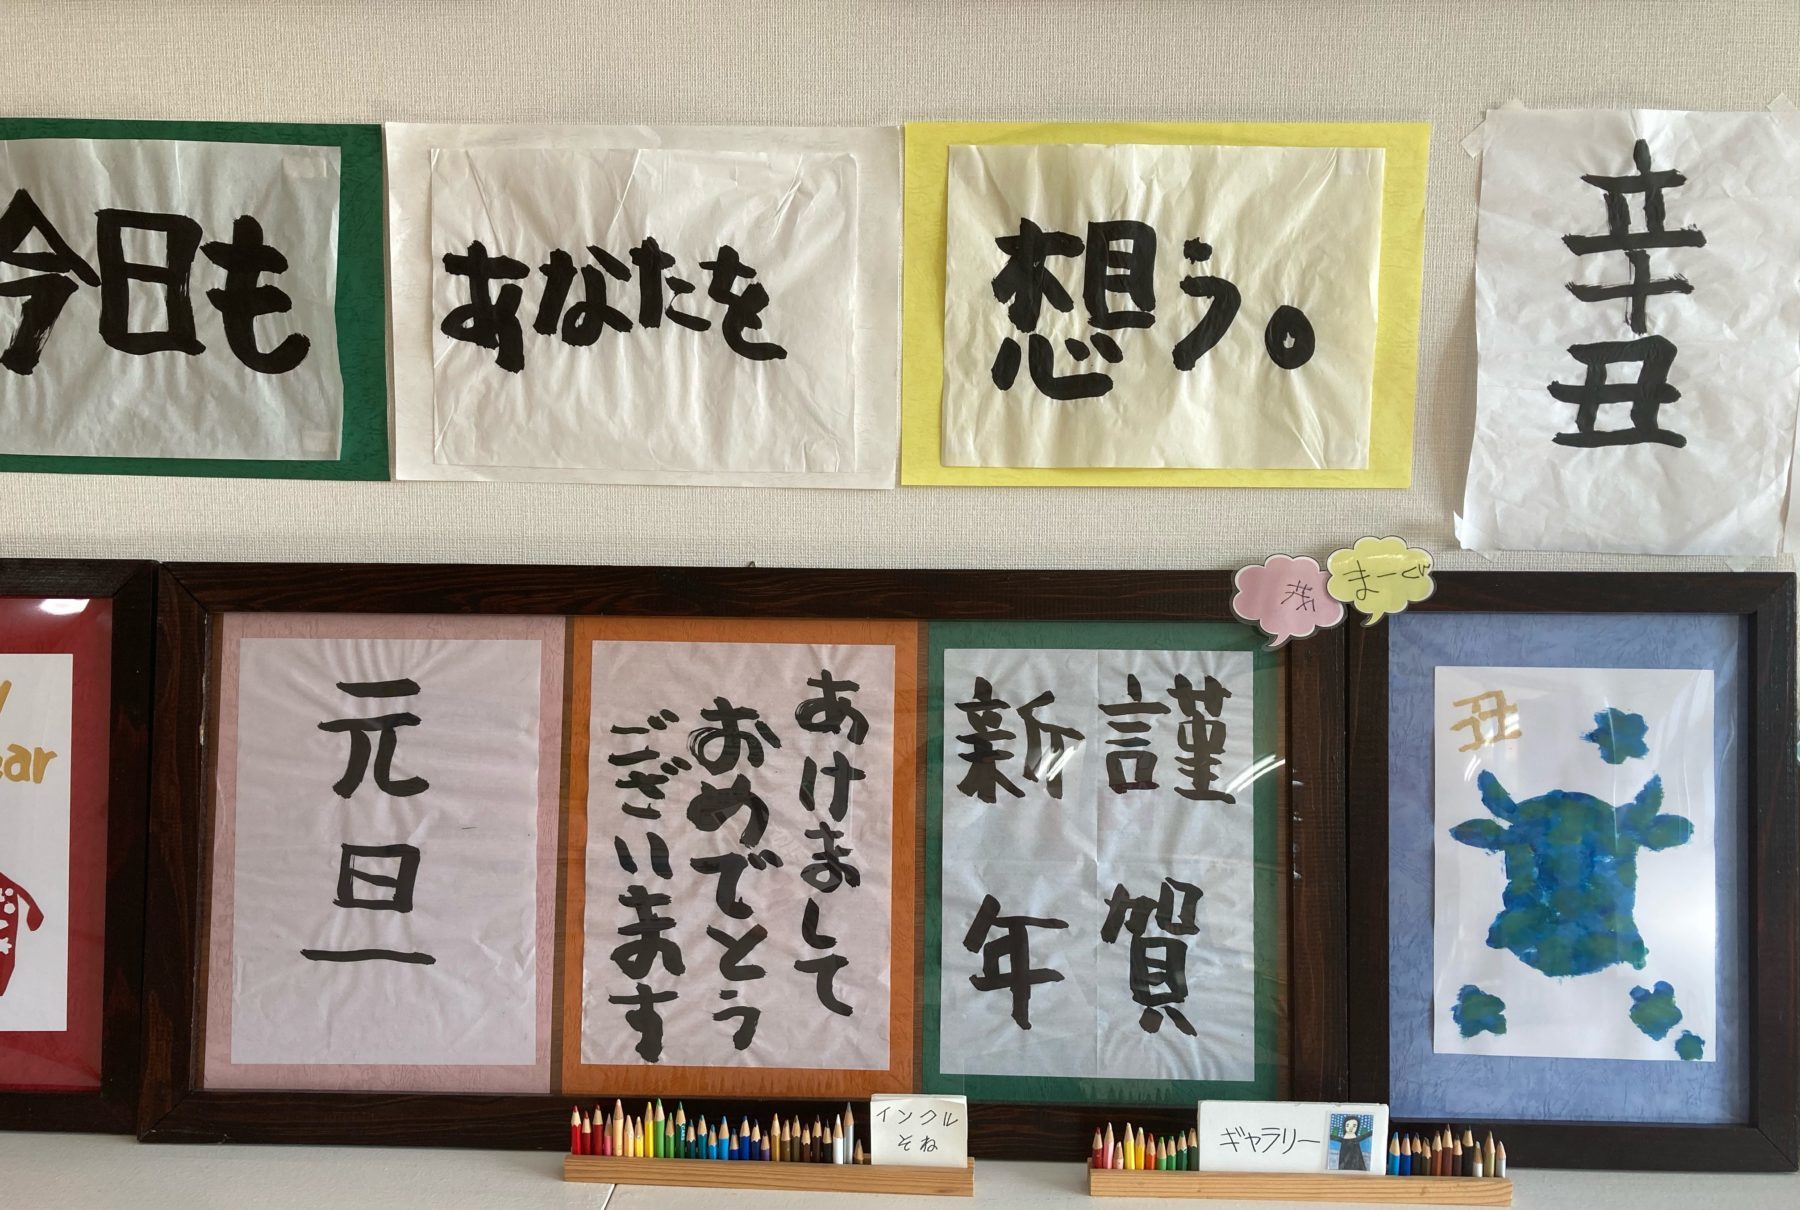 今日も
あなたを
想う。
辛
丑
ear
元
旦
あけまして
おめでとう
ございます
謹賀
新年
茂
まーご
丑
インクル
そね
ギャラリー